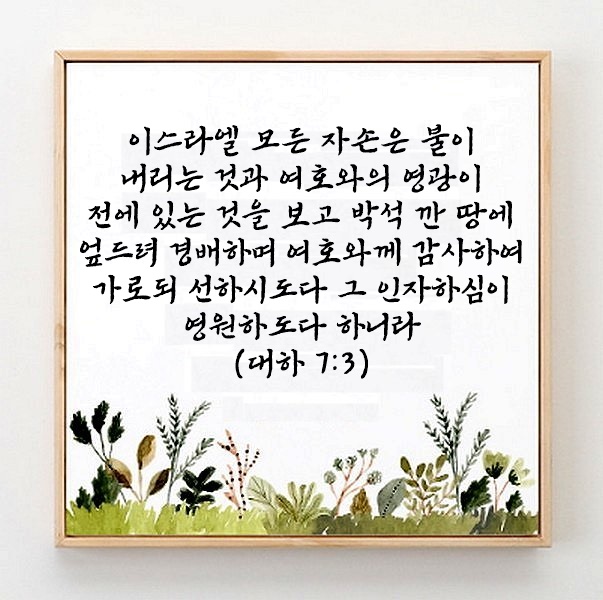 이스라엘 모든 자손은 불이
내리는 것과 여호와의 영광이
전에 있는 것을 보고 박석 깐 땅에
엎드려 경배하며 여호와께 감사하여
가로되 선하시도다 그 인자하심이
영원하도다 하니라
(대하 7:3)